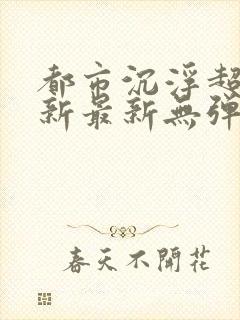 都市沉浮超
新最新無彈
春天不開花